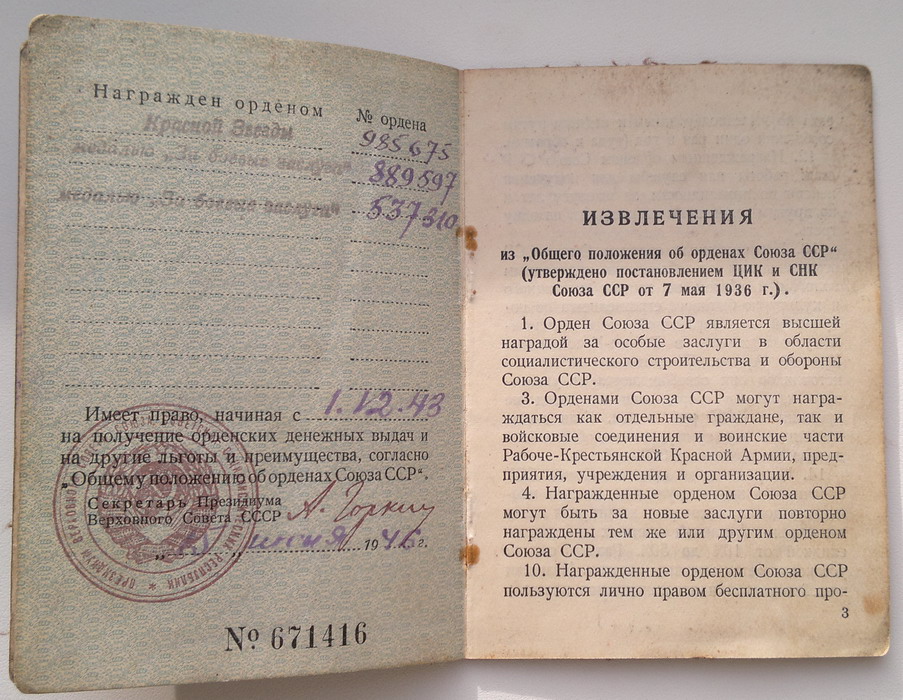 Награжден орденом
№ ордена
Красной Звезды
985675
медалью „За боевые заслуги“
889597
медалью „За боевые заслуги“
537310
Имеет право, начиная с
на получение орденских денежных выдач и
на другие льготы и преимущества, согласно
„Общему положению об орденах Союза ССР“.
Секретарь Президиума
Верховного Совета СССР А. Горкин
июня 1946 г.
№ 671416
ИЗВЛЕЧЕНИЯ
из „Общего положения об орденах Союза ССР“
(утверждено постановлением ЦИК и СНК
Союза ССР от 7 мая 1936 г.).
1. Орден Союза ССР является высшей
наградой за особые заслуги в области
социалистического строительства и обороны
Союза ССР.
3. Орденами Союза ССР могут награ-
ждаться как отдельные граждане, так и
войсковые соединения и воинские части
Рабоче-Крестьянской Красной Армии, пред-
приятия, учреждения и организации.
4. Награжденные орденом Союза ССР
могут быть за новые заслуги повторно
награждены тем же или другим орденом
Союза ССР.
10. Награжденные орденом Союза ССР
пользуются лично правом бесплатного про-
3